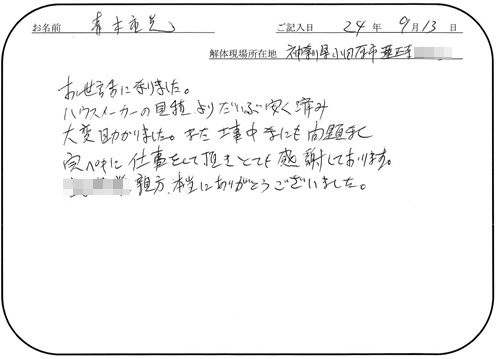 お名前 青木 ご記入日 24年 9月 13日
解体現場所在地 神奈川県小田原市
お世話に成りました。
ハウスメーカーの見積よりだいぶ安く済み
大変助かりました。また工事中も問題なく
完ペキに仕事をして頂きとても感謝しております。
親方、本当にありがとうございました。